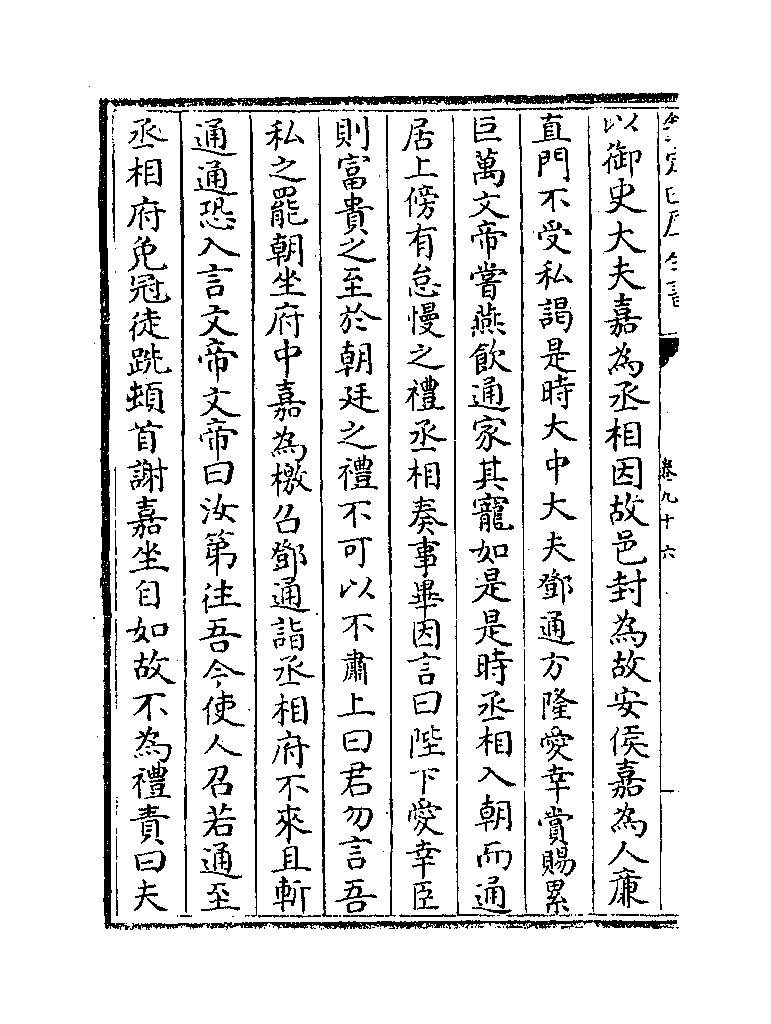 以御史大夫嘉為丞相因故邑封為故安侯嘉為人廉
直門不受私謁是時太中大夫鄧通方隆愛幸賞賜累
巨萬文帝嘗燕飲通家其寵如是是時丞相入朝而通
居上傍有怠慢之禮丞相奏事畢因言曰陛下愛幸臣
則富貴之至於朝廷之禮不可以不肅上曰君勿言吾
私之罷朝坐府中嘉為檄召鄧通詣丞相府不來且斬
通通恐入言文帝文帝曰汝第往吾今使人召若通至
丞相府免冠徒跣頓首謝嘉坐自如故不為禮責曰夫
卷九十六